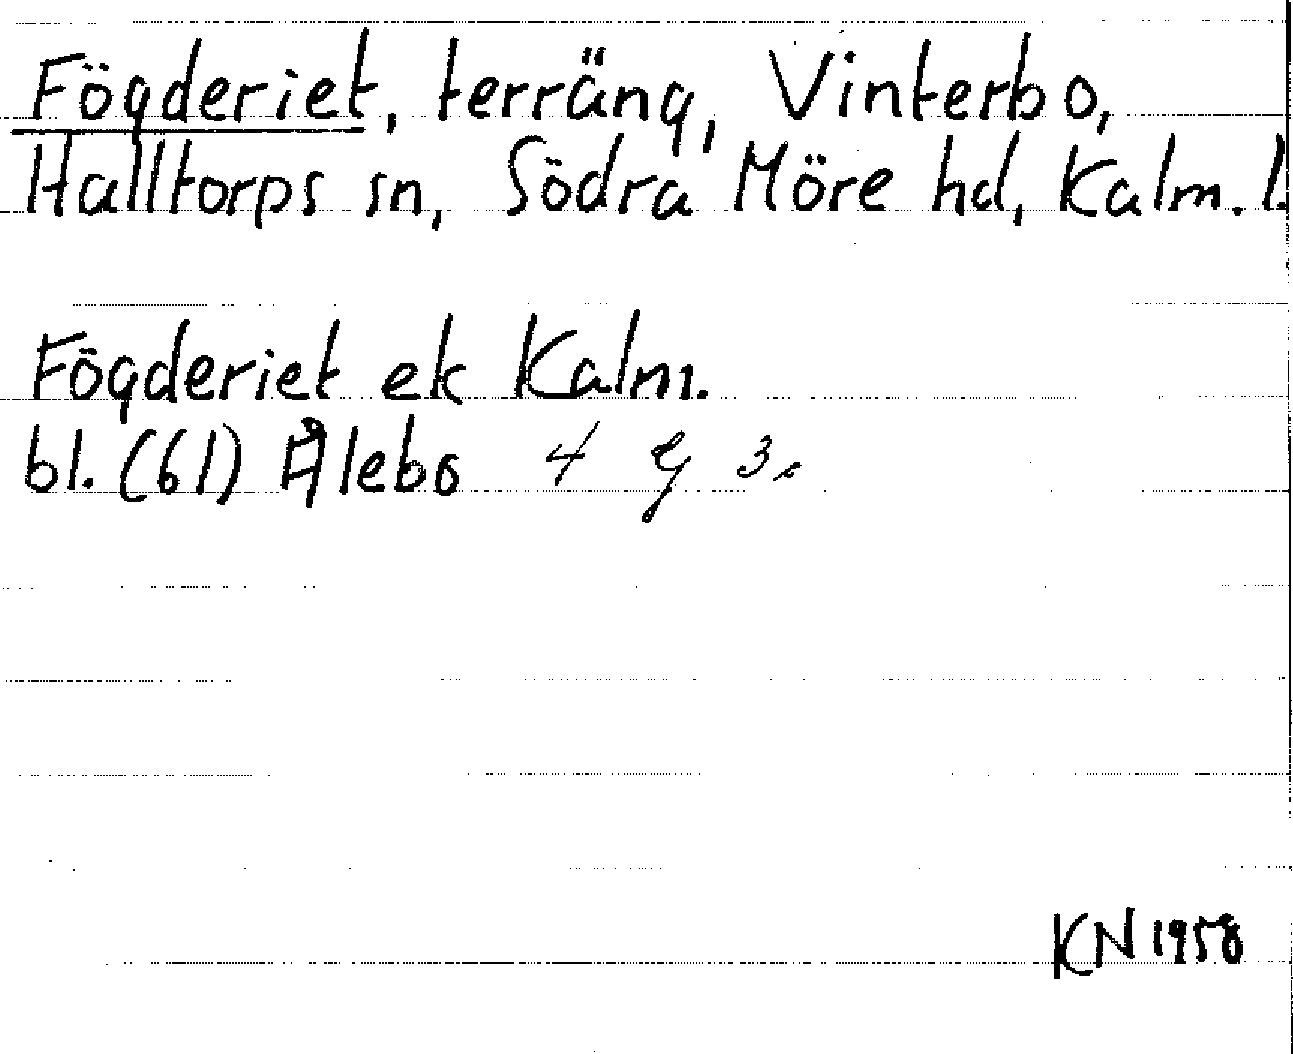 Fögderiet, terräng, Vinterbo,
Halltorps sn, Södra Möre hd, Kalm. l.
Fögderiet ek Kalm.
bl. (61) Ålebo 4 g 3c
KN 1958